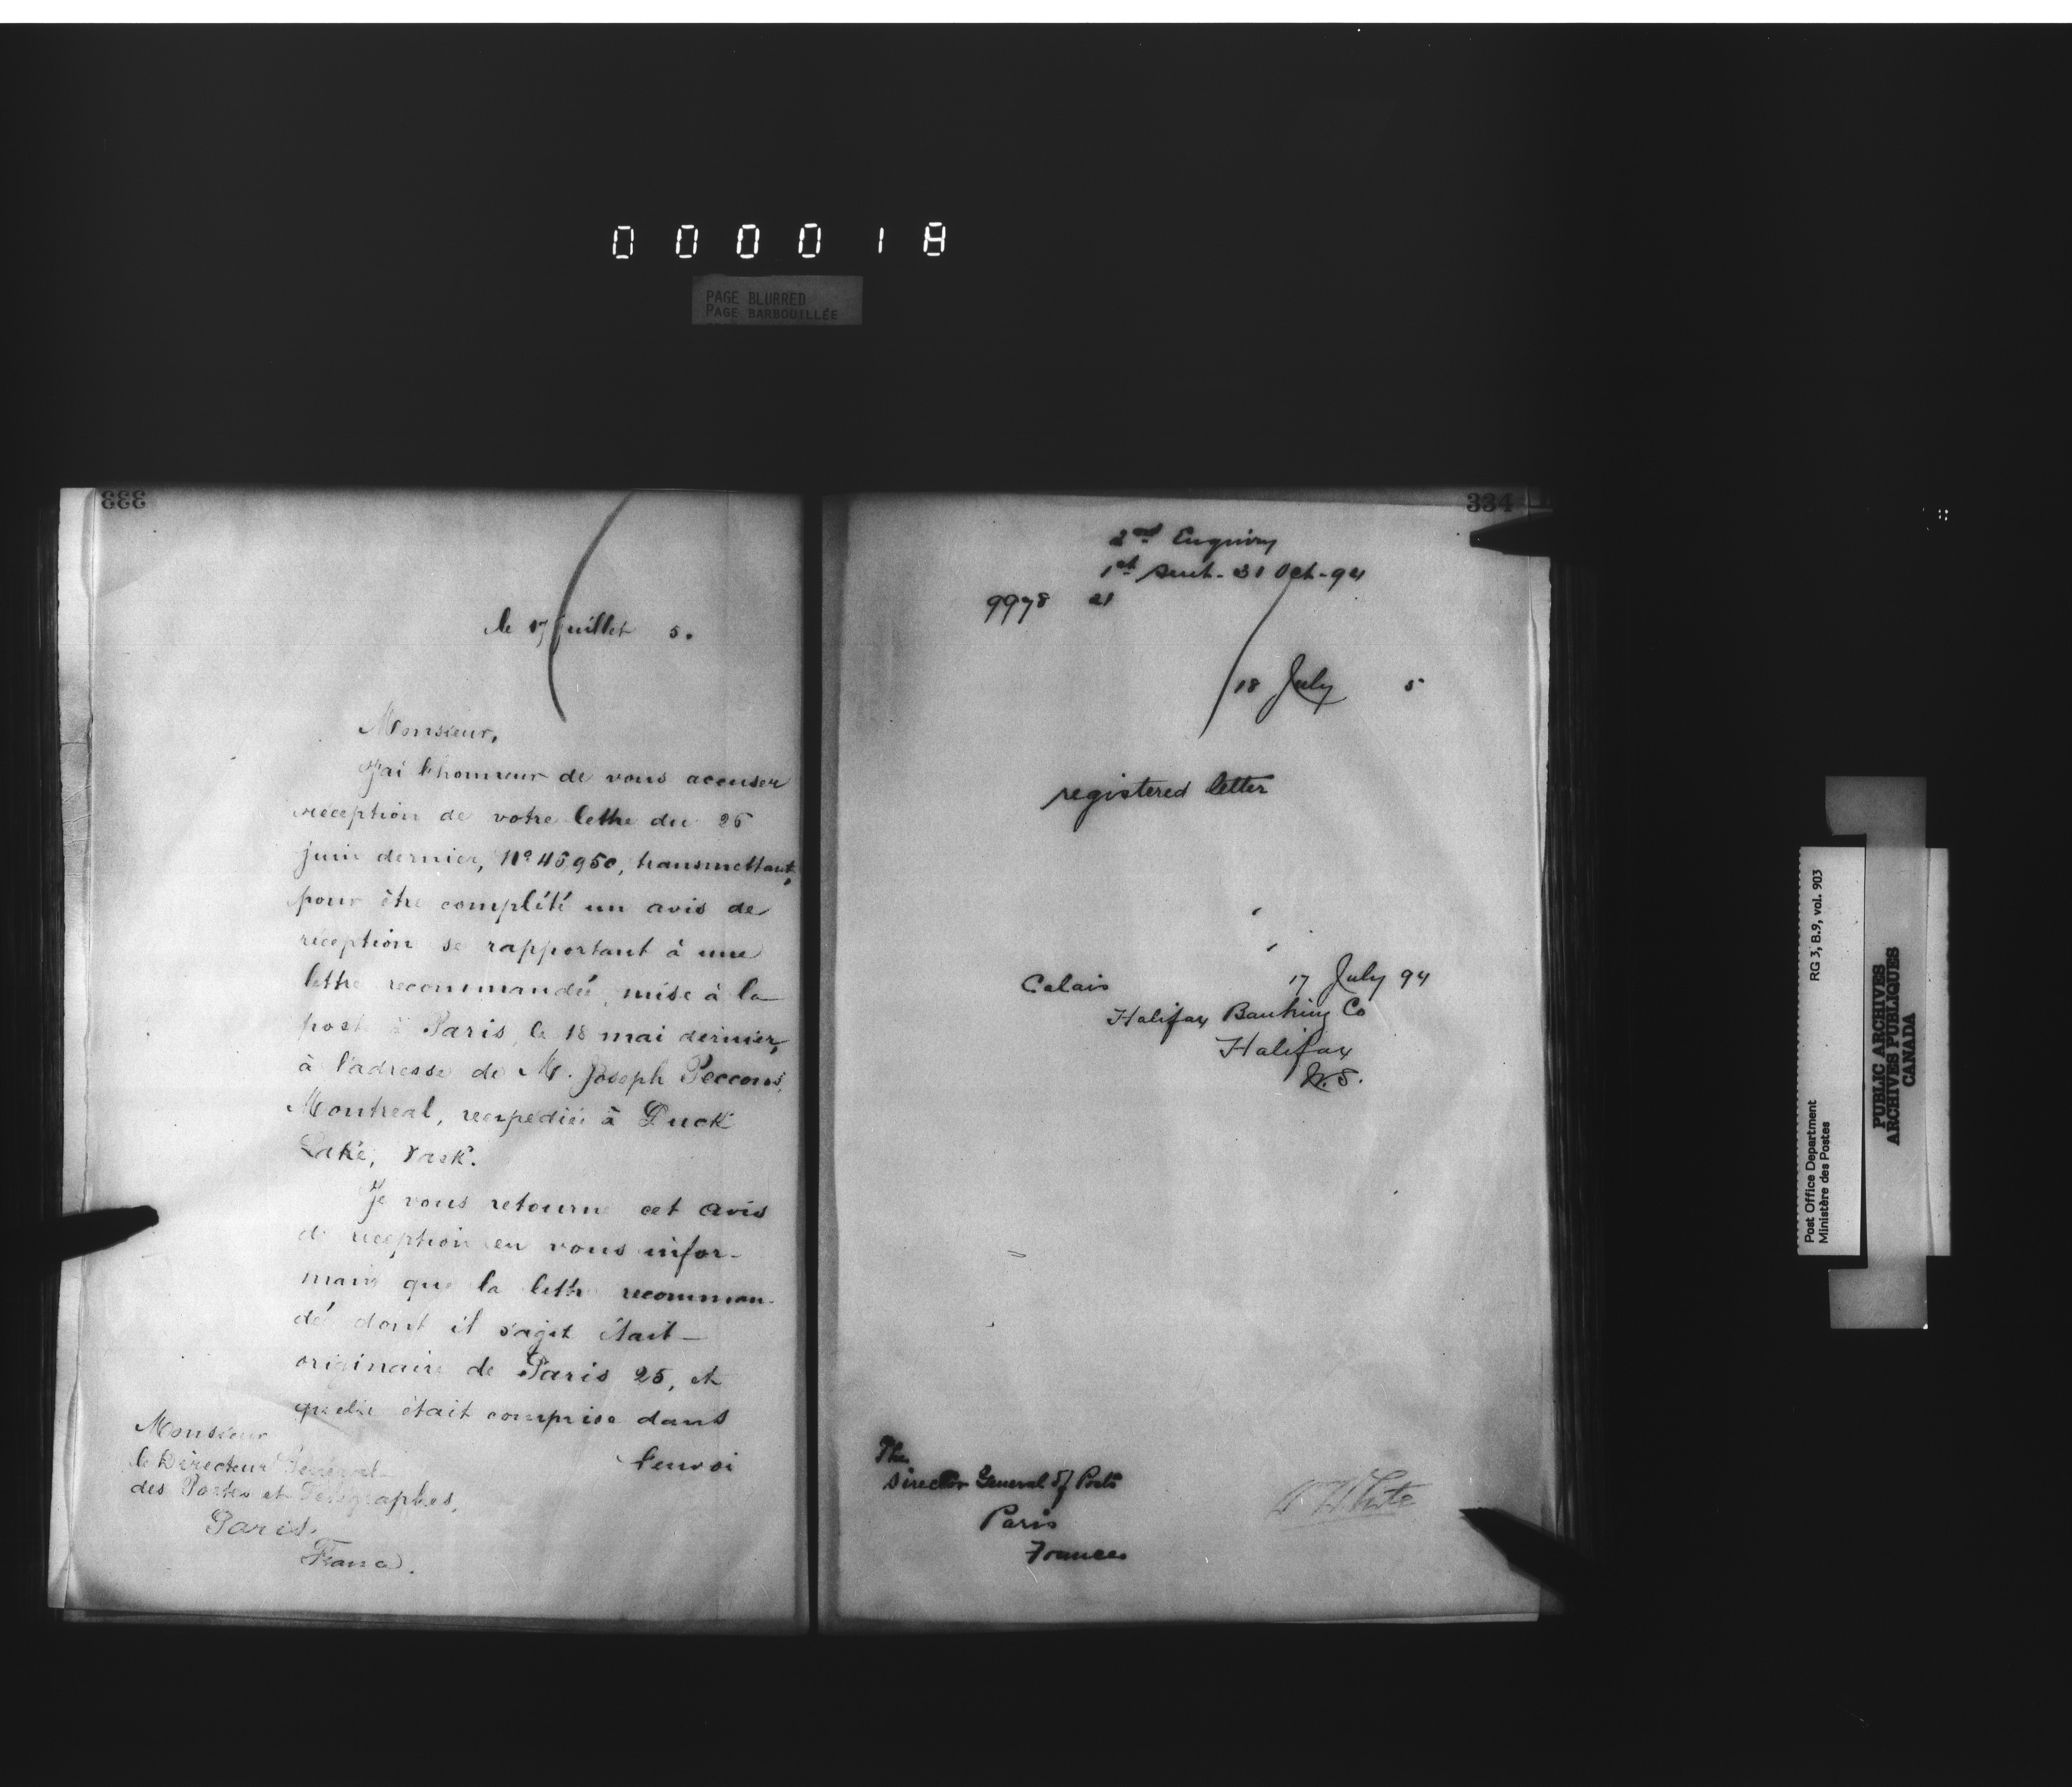 000018
PAGE BLURRED
PAGE BARBOUILLÉE
333
le 17 juillet 5.
Monsieur,
J'ai l'honneur de vous accuser
réception de votre lettre du 26
juin dernier, No 45950, transmettant,
pour être complété un avis de
réception se rapportant à une
lettre recommandée, mise à la
poste à Paris, le 18 mai dernier,
à l'adresse de M. Joseph
Montreal, reexpédiée à Duck
Lake, Sask.
Je vous retourne cet avis
de réception en vous infor-
mant que la lettre recomman-
dée dont il s'agit était
originaire de Paris 25, et
qu'elle était comprise dans
l'envoi
Monsieur
le Directeur Général
des Postes et Télégraphes,
Paris,
France.
334
2nd Enquiry
1st sent - 31 Oct - 94
9978 21
18 July 5
registered letter
Calais 17 July 94
Halifax Banking Co
Halifax
N.S.
The
Director General of Posts
Paris
France
W White
Post Office Department
Ministère des Postes
RG 3, B.9, vol. 903
PUBLIC ARCHIVES
ARCHIVES PUBLIQUES
CANADA